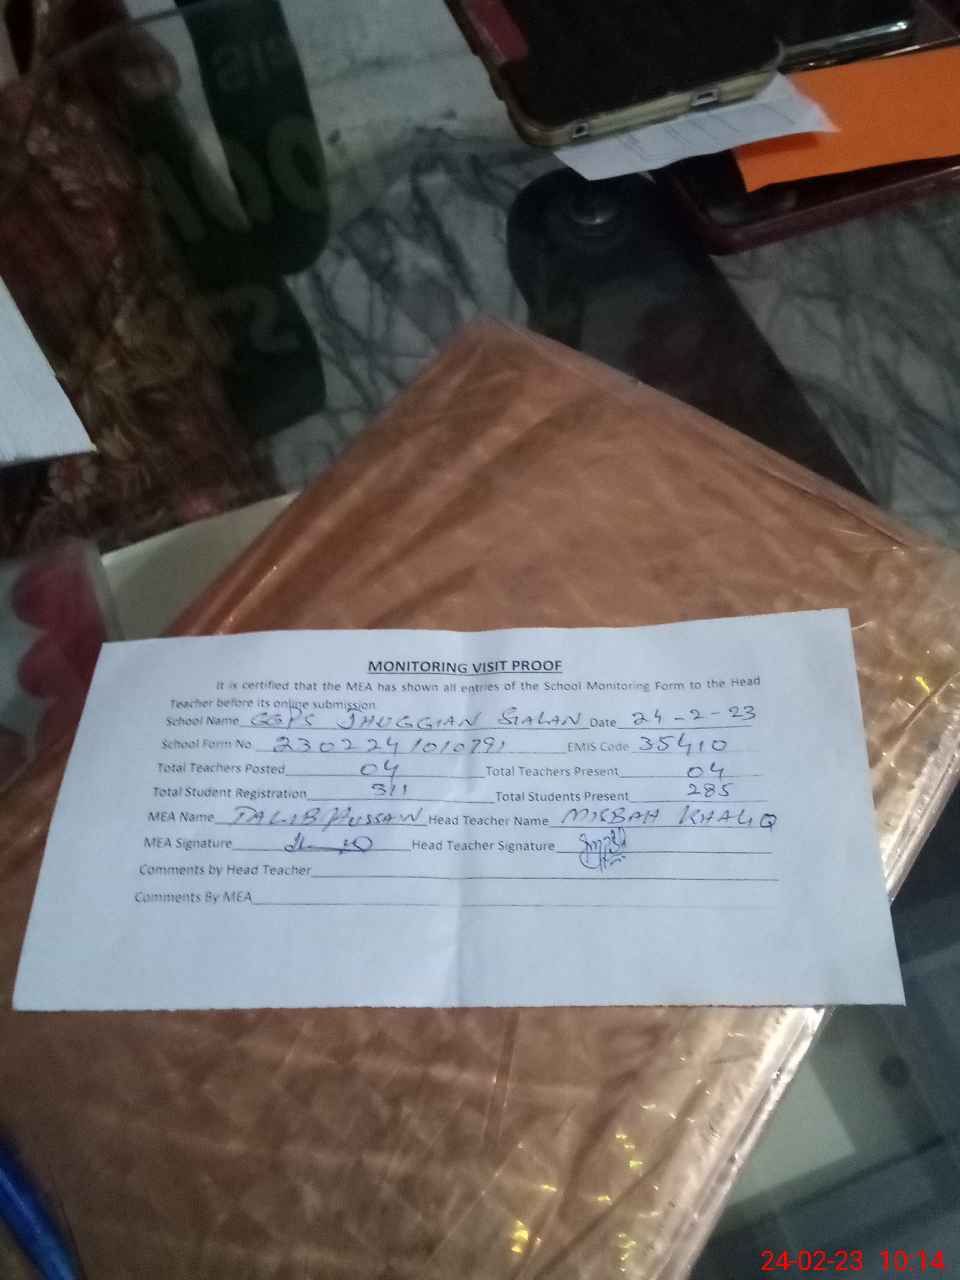 MONITORING VISIT PROOF
It is certified that the MEA has shown all entries of the School Monitoring Form to the Head
Teacher before its online submission.
School Name GGPS JHUGGIAN SIALAN Date 24-2-23
School Form No. 2302241010791 EMIS Code 35410
Total Teachers Posted 04 Total Teachers Present 04
Total Student Registration 311 Total Students Present 285
MEA Name TALIB HUSSAIN Head Teacher Name MISBAH KHALIQ
MEA Signature Head Teacher Signature
Comments by Head Teacher
Comments By MEA
24-02-23 10:14